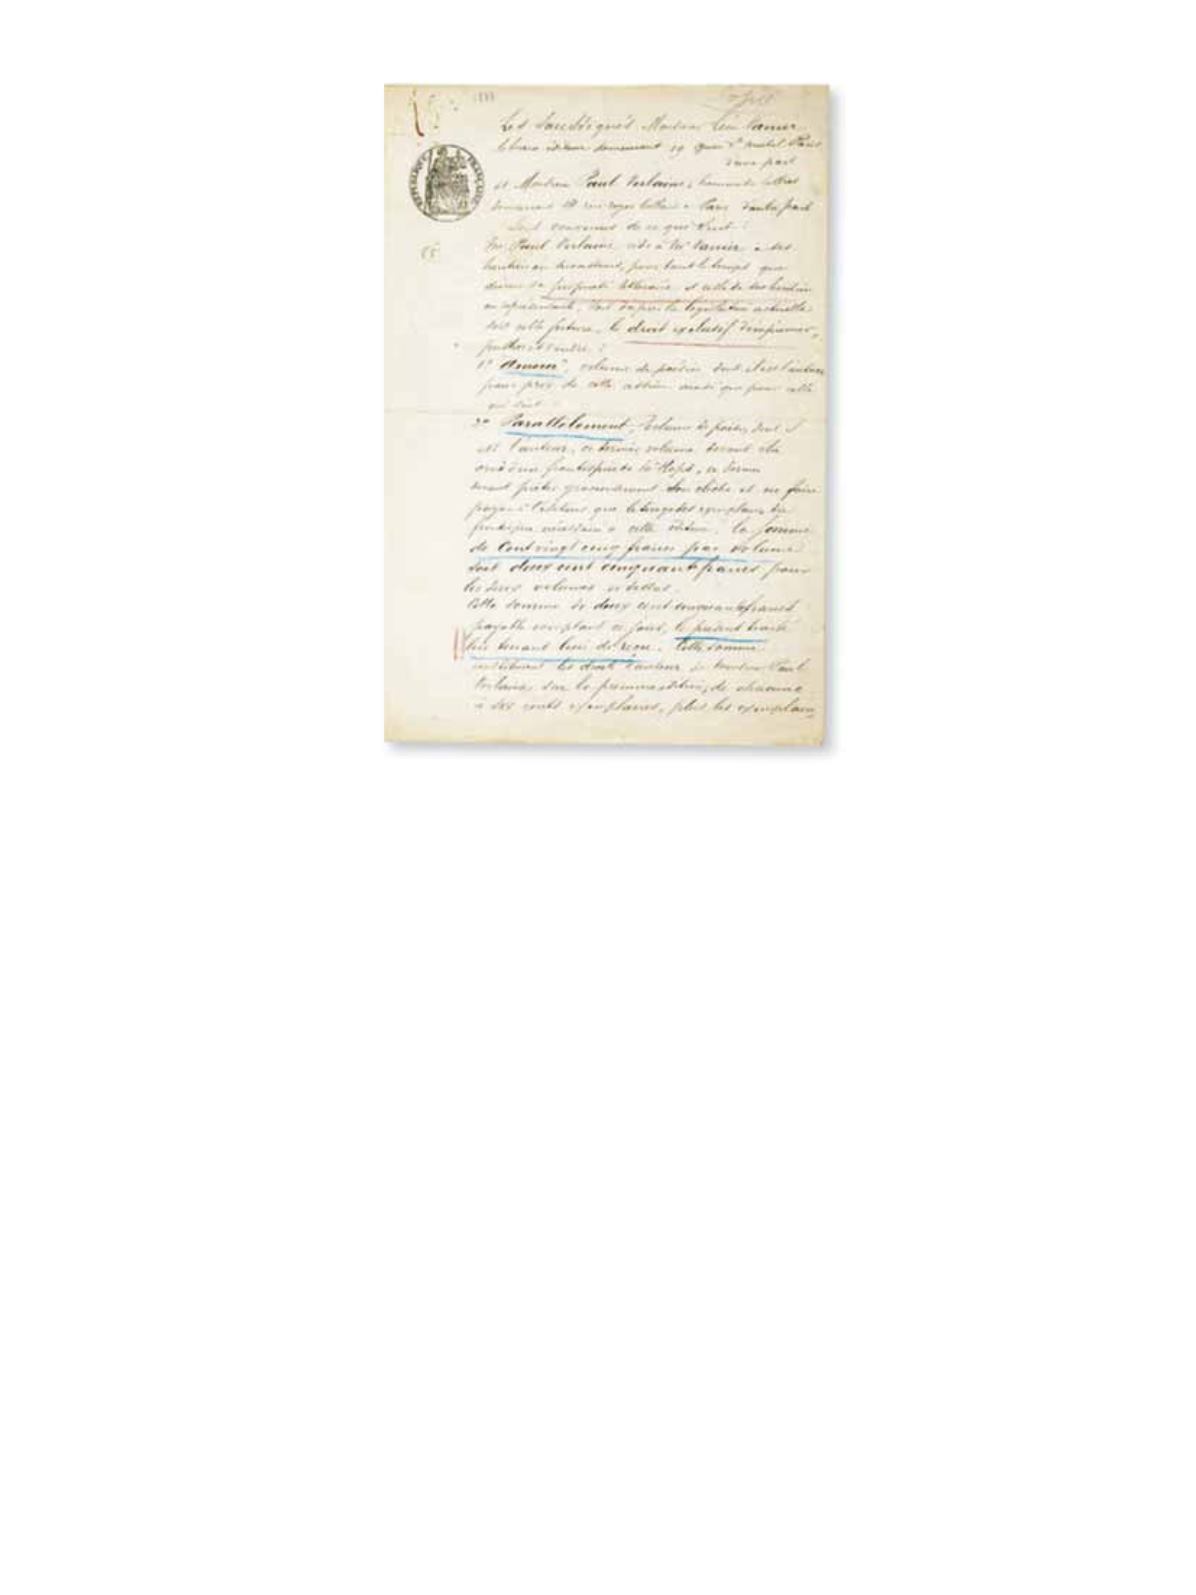 Copie
Les Soussignés Monsieur Léon Vanier
libraire éditeur demeurant 19 quai St michel Paris
d'une part
et Monsieur Paul Verlaine, homme de lettres
demeurant rue royer Collard à Paris d'autre part
Sont convenus de ce qui suit :
Mr Paul Verlaine cède à Mr Vanier & ses
héritiers ou pour tout le temps que
durera sa propriété littéraire et celle de ses héritiers
ou représentants, soit d'après la législation actuelle
soit celle future, le droit exclusif d'imprimer,
publier et vendre :
1° "Amour", volume de poésies dont il est l'auteur
prix de cette édition ainsi que pour celle
qui suit
2° Parallèlement, volume de poésies, dont il
est l'auteur, ce dernier volume devant être
orné d'un frontispice de Mr Rops, ce dernier
devant prêter gracieusement son cliché et ne faire
payer à l'éditeur que le tirage des exemplaires du
frontispice nécessaire à cette édition. la somme
de Cent vingt cinq francs par volume
soit deux cent cinquante francs pour
les deux volumes
Cette somme de deux cent cinquante francs
payable comptant ce jour, le présent traité
lui tenant lieu de reçu. Cette somme
constituant les droits d'auteur de Monsieur Paul
Verlaine sur la première édition de chacune
à six cents exemplaires, plus les exemplaires
RÉPUBLIQUE FRANÇAISE